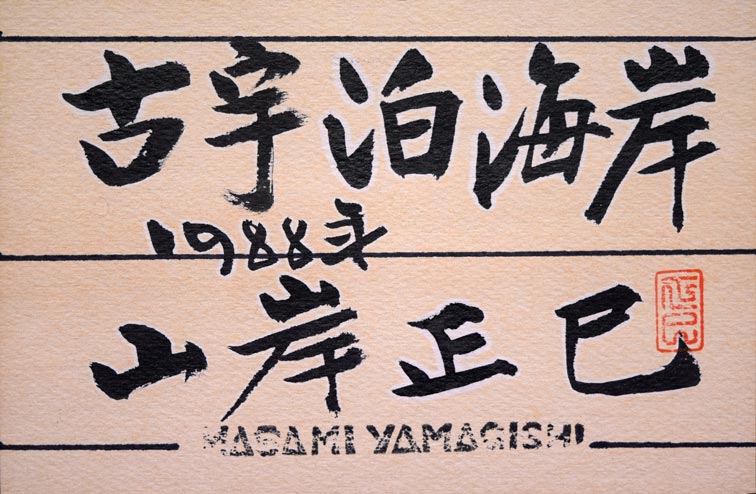 古宇泊海岸
1988年
山岸正巳
MASAMI YAMAGISHI